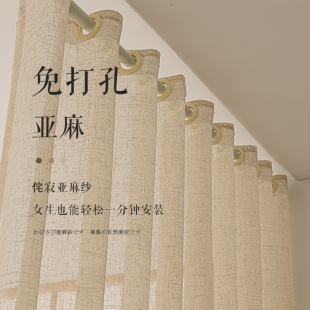 免打孔
亚麻
侘寂亚麻纱
女生也能轻松一分钟安装